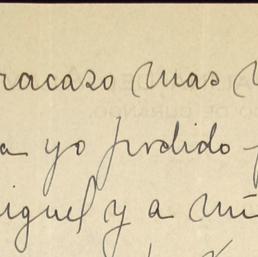 racaso mas
a yo perdido
iguel y a mi